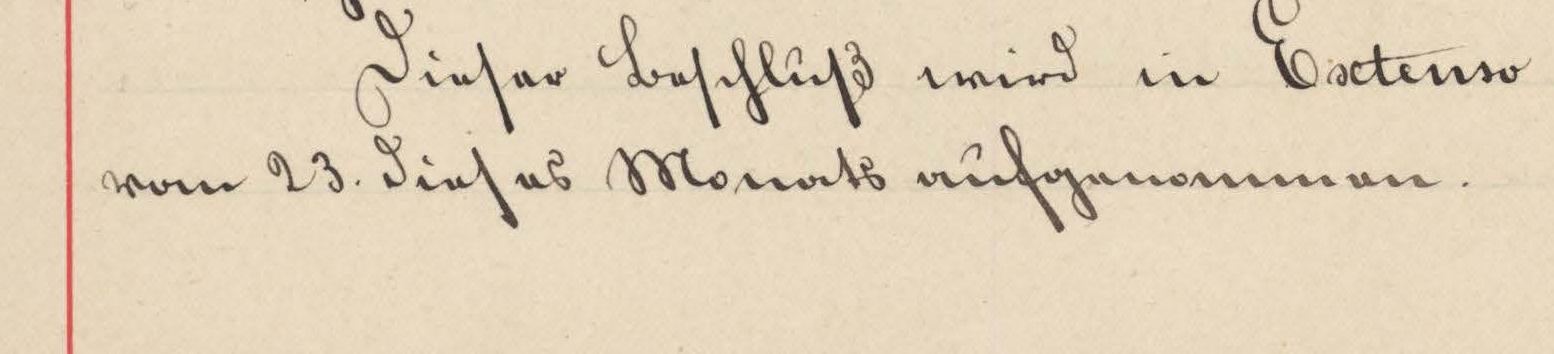 Dieser Beschluß wird in Extenso
vom 23. dieses Monats aufgenommen.